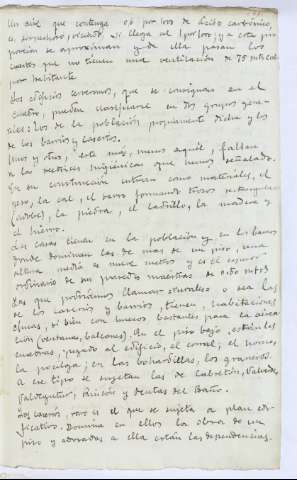 Un aire que contenga 06 por 100 de ácido carbónico,
es sospechoso; cuando llega al 1 por 100; y a esta pro
porción se aproximan y de ella pasan los
cuartos que no tienen una ventilación de 75 mts cub.
por habitante
Los edificios cerverinos, que se consignan en el
cuadro, pueden clasificarse en dos grupos gene-
rales: los de la población propiamente dicha y los
de los barrios y caseríos.
Unos y otros, este más, menos aquél, faltan
a las rectrices higiénicas que hemos señalado.
En su construcción entran como materiales, el
yeso, la cal, el barro formando trozos rectangulares
(adobe), la piedra, el ladrillo, la madera y
el hierro.
Las casas tienen en la población y en los barrios
donde dominan las de más de un piso, una
altura media de nueve metros y es el espesor
ordinario de sus paredes maestras de 0.50 mtrs
Las que podríamos llamar rurales o sea las
de los caseríos y barrios, tienen habitaciones
chicas, si bien con huecos bastantes para la airea
ción (ventanas, balcones). En el piso bajo, están las
cuadras, pegado al edificio, el corral; el horno,
la pocilga; en las bohardillas, los graneros.
A ese tipo se sujetan las de Cabretón, Valverde,
Valdegutur, Rincón y Ventas del Baño.
Los caseríos, raro es el que se sujeta a plan edi-
ficativo. Domina en ellos la obra de un
piso y adosadas a ella están las dependencias.